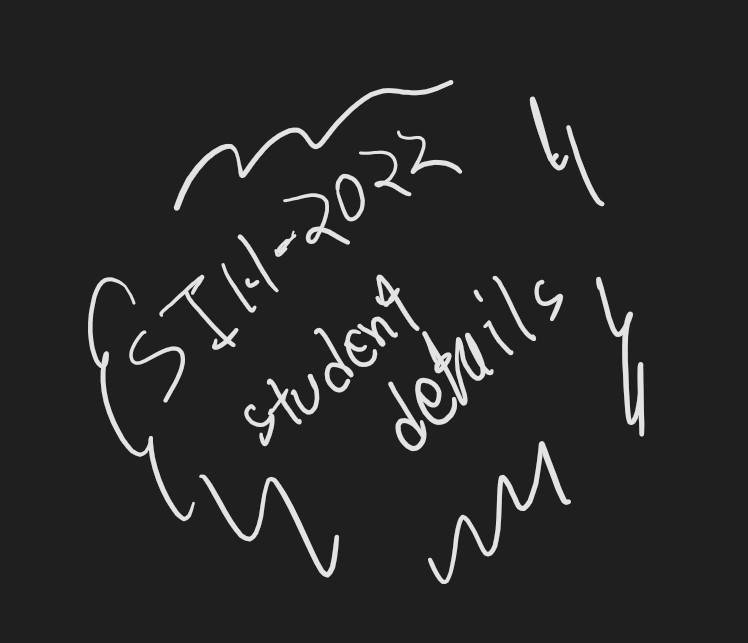 SIH-2022
student
details